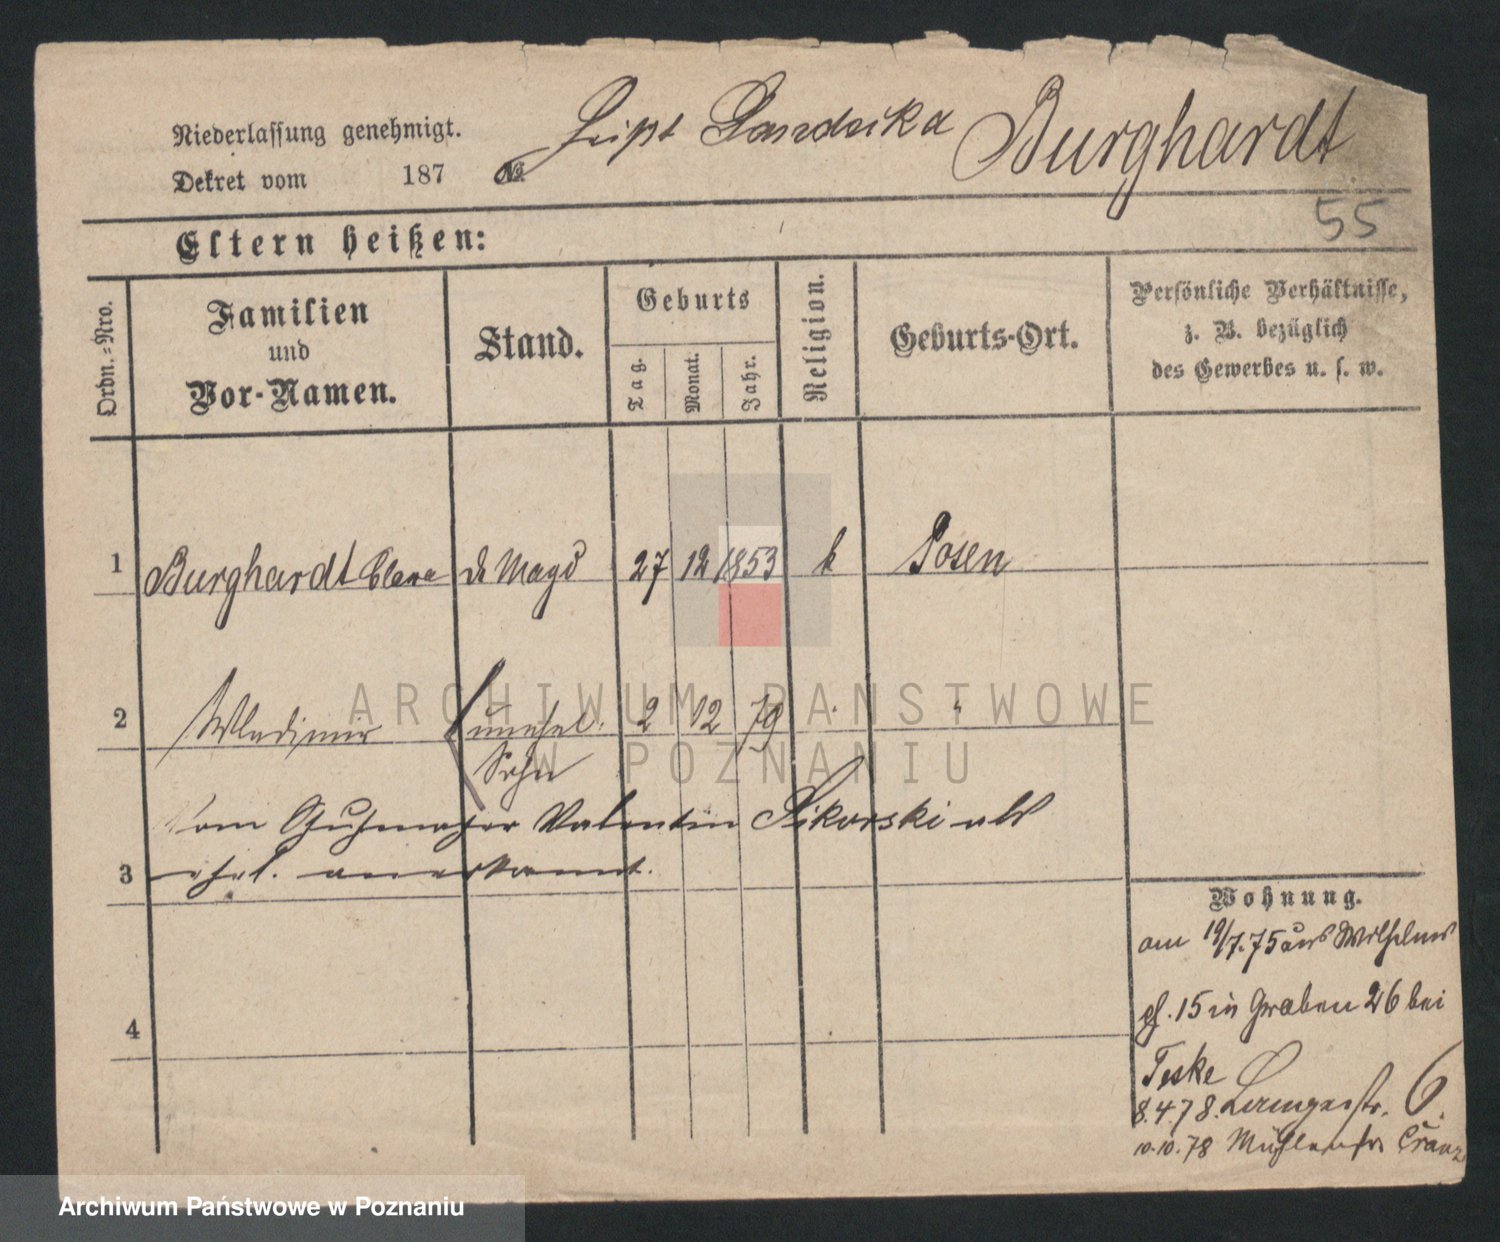 Niederlassung genehmigt.
Dekret vom 187 №
heißt Burghardt
55
Eltern heißen:
Ordn.-Nro.
Familien
und
Vor-Namen.
Stand.
Geburts
Tag.
Monat.
Jahr.
Religion.
Geburts-Ort.
Persönliche Verhältnisse,
z. B. bezüglich
des Gewerbes u. s. w.
1 Burghardt d. Magd 27 12 1853 k Posen
2 Wladimir unehel. 2 12 79 "
Sohn
vom Schuhmacher Valentin Sikorski als
3 ehel. anerkannt.
4
Wohnung.
am 19/7.75 aus Wilhelms
pl. 15 in Graben 26 bei
Teske
8.4.78. Langestr. 6.
10.10.78 Mühlenstr
ARCHIWUM PAŃSTWOWE
W POZNANIU
Archiwum Państwowe w Poznaniu